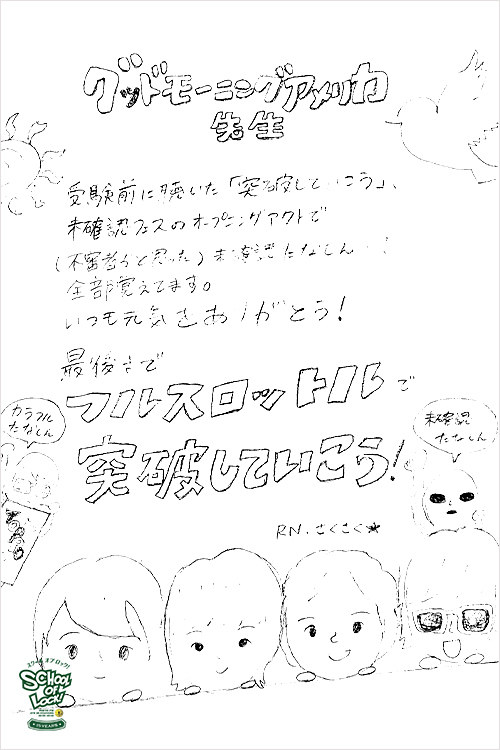 グッドモーニングアメリカ
先生
受験前に聴いた「突破していこう」、
未確認フェスのオープニングアクトで
(不審者かと思った)未確認たなしん…!
全部覚えてます。
いつも元気をありがとう!
最後まで
フルスロットルで
突破していこう!
カラフル
たなしん
未確認
たなしん
RN.さくさく★
スクールオブロック!
SCHOOL
OF
LOCK!